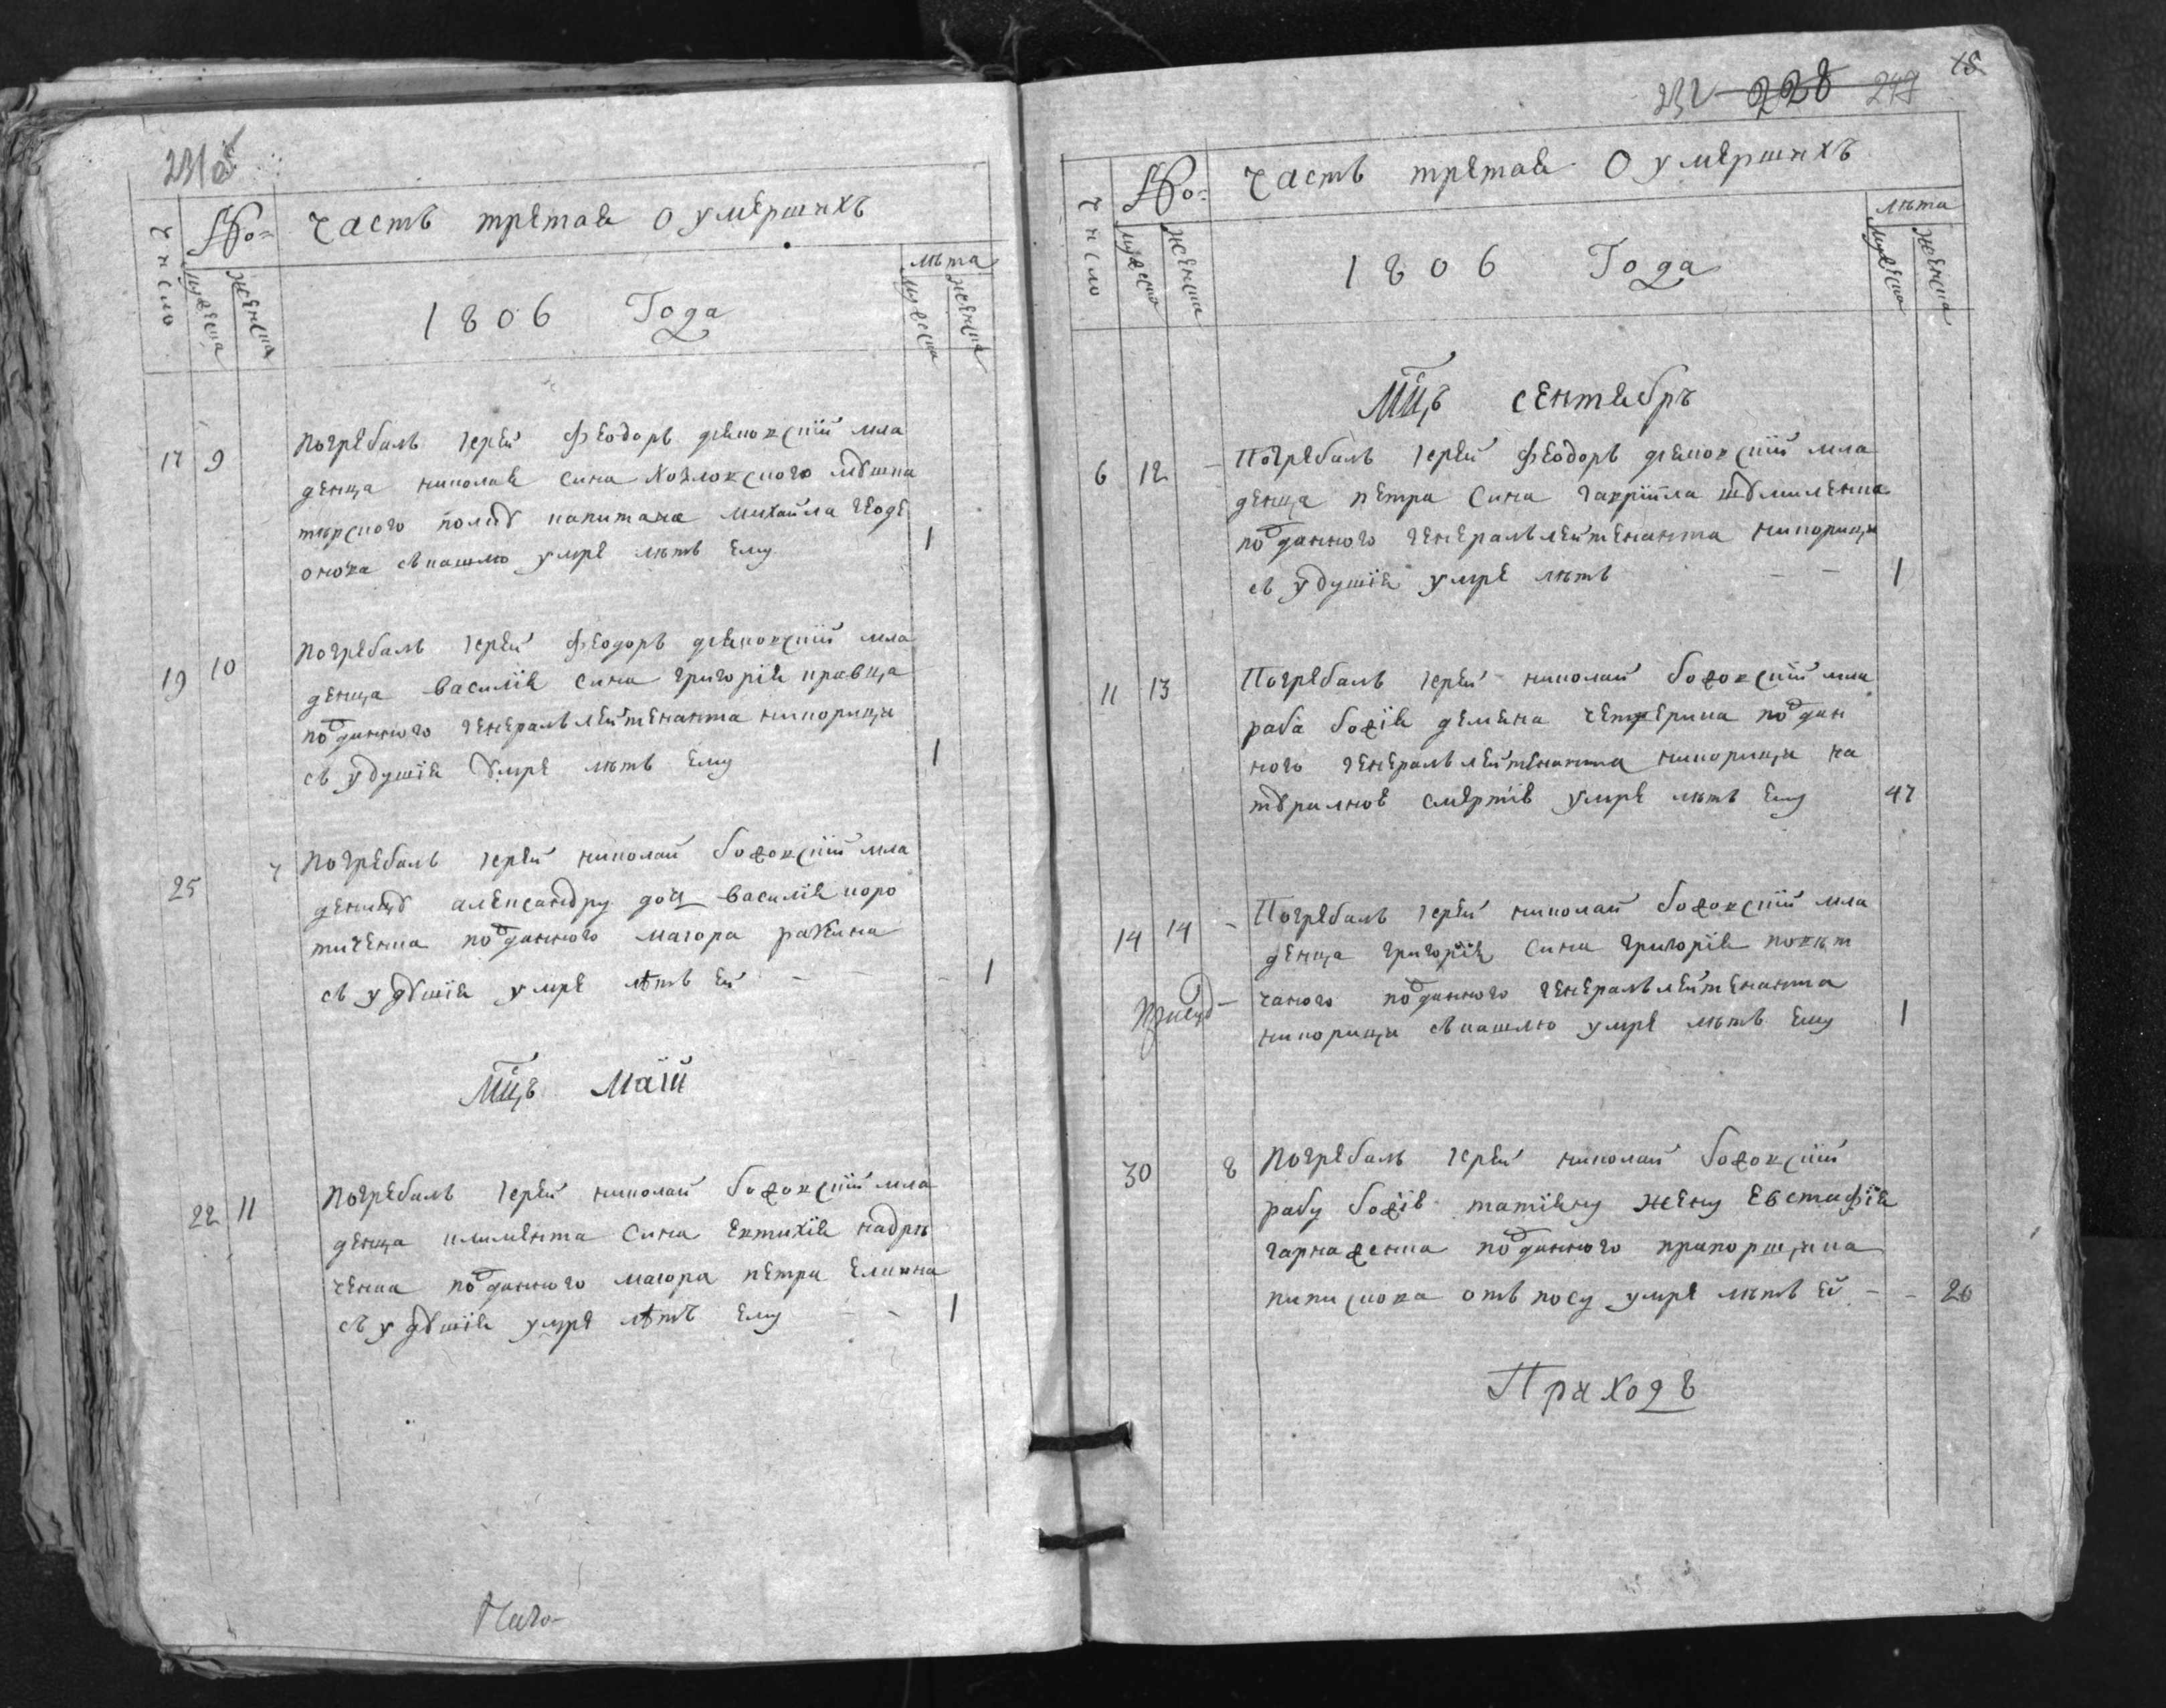 No=
Часть третая О умершихъ
число
мужеска
женска
1806 Года
лѣта
мужеска
женска
17 9 погребалъ іерей Феодоръ дяковскій мла
денца николая сина козловского мушка
терского полку капитана михаила
съ кашлю умре лѣтъ ему 1
19 10 погребалъ іерей Феодоръ дяковскій мла
денца василія сина григорія кравца
подданного генералъ лейтенанта кипориція
съ удушія умре лѣтъ ему 1
25 7 погребалъ іерей николай божовскій мла
деницу александру дочь василія коро
тиченка подданного маіора
съ удушія умре лѣтъ ей - - - 1
Мцъ Маій
22 11 погребалъ іерей николай божовскій мла
денца климента сина евтихія
ченка подданного маіора петра
съ удушія умре лѣтъ ему - - 1
232 228 249
18
No=
Часть третая О умершихъ
число
мужеска
женска
1806 Года
лѣта
мужеска
женска
Мцъ сентябръ
6 12 - Погребалъ іерей Феодоръ дяковскій мла
денца петра сина гавріила шумиленка
подданного генералъ лейтенанта кипориція
съ удушія умре лѣтъ - - 1
11 13 Погребалъ іерей николай божовскій
раба божія демяна подан
ного генералъ лейтенанта кипориція на
туралною смертію умре лѣтъ ему 47
14 14 - Погребалъ іерей николай божовскій мла
денца григорія сина григорія повѣт
чаного подданного генералъ лейтенанта
кипориція съ кашлю умре лѣтъ ему 1
30 8 погребалъ іерей николай божовскій
рабу божію татіяну жену Евстафія
гарнаженка подданного прапорщика
отъ умре лѣтъ ей - - 20
Приходъ